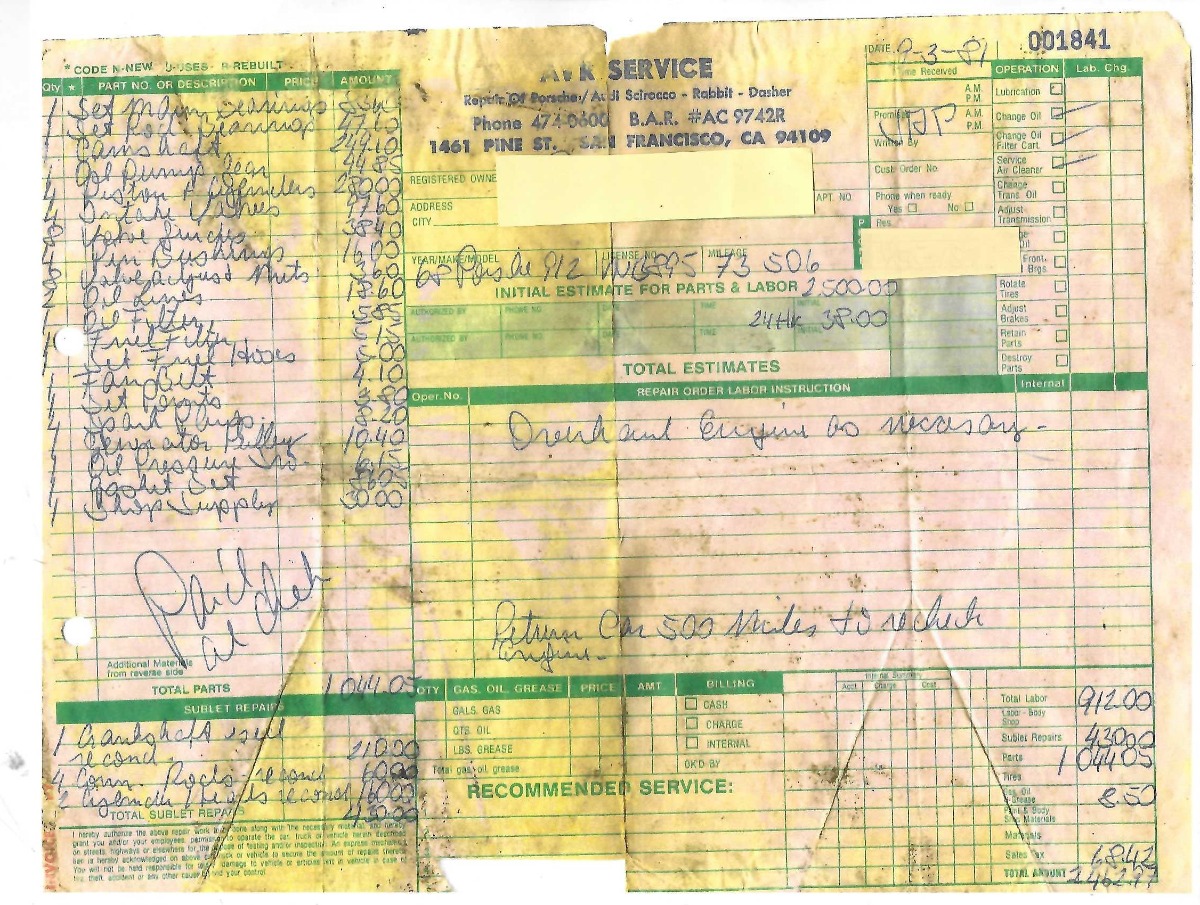 * CODE N-NEW U-USES- R-REBUILT
Qty * PART NO. OR DESCRIPTION PRICE AMOUNT
1 Set Main Bearings
1 Set Rod Bearings 47.60
1 Camshaft 244.10
1 Oil Pump Gear 44.85
4 Piston & Cylinders 280.00
4 Intake Valves 47.60
Valve 38.40
4 Pin Bushings 16.00
Valve adjust Nuts 13.60
2 Oil Lines
1 Oil Filter 5.85
1 Fuel Filter
1 Set Fuel Hoses 5.00
1 Fan Belt 4.10
1 Set Points
4 Spark Plugs
1 Generator Pulley 10.40
1 Oil Pressure
1 Gasket Set
1 Shop Supplies 30.00
Paid
Additional Materials
from reverse side
TOTAL PARTS 1 044.05
SUBLET REPAIRS
1 Crankshaft
recond. 210.00
4 Conn Rods recond 60.00
2 Cylinder Heads recond 160.00
TOTAL SUBLET REPAIRS 430.00
I hereby authorize the above repair work to be done along with the necessary material, and hereby
grant you and/or your employees, permission to operate the car, truck or vehicle herein described
on streets, highways or elsewhere for the purpose of testing and/or inspection. An express mechanic's
lien is hereby acknowledged on above car, truck or vehicle to secure the amount of repairs thereto.
You will not be held responsible for loss or damage to vehicle or articles left in vehicle in case of
fire, theft, accident or any other cause beyond your control.
SERVICE
Repair Of Porsche/Audi Scirocco - Rabbit - Dasher
Phone 474-0600 B.A.R. #AC 9742R
1461 PINE ST. SAN FRANCISCO, CA 94109
REGISTERED OWNE
ADDRESS APT. NO.
CITY
YEAR/MAKE/MODEL LICENSE NO. MILEAGE
68 Porsche 912 73 506
INITIAL ESTIMATE FOR PARTS & LABOR 2500.00
AUTHORIZED BY PHONE NO. DATE TIME INITIAL
24 Hr 38.00
AUTHORIZED BY PHONE NO. TIME INITIAL
TOTAL ESTIMATES
Oper.No. REPAIR ORDER LABOR INSTRUCTION Internal
Overhaul Engine as necesary-
Return Car 500 Miles to recheck
Engine-
DATE 9-3-81 001841
Time Received A.M.
P.M.
Promised A.M.
P.M.
Written By
Cust. Order No.
Phone when ready
Yes No
Res.
OPERATION Lab. Chg.
Lubrication
Change Oil
Change Oil
Filter Cart.
Service
Air Cleaner
Change
Trans Oil
Adjust
Transmission
Front
Brgs.
Rotate
Tires
Adjust
Brakes
Retain
Parts
Destroy
Parts
QTY GAS. OIL. GREASE PRICE AMT. BILLING
GALS. GAS CASH
QTS. OIL CHARGE
LBS. GREASE INTERNAL
Total gas-oil grease OKD BY
RECOMMENDED SERVICE:
Internal Summary
Acct. Charge Cost
Total Labor 912.00
Labor - Body
Shop
Sublet Repairs 430.00
Parts 1 044.05
Tires
Gas, Oil
& Grease 8.50
Paint & Body
Shop Materials
Materials
Sales Tax 68.42
TOTAL AMOUNT 2462.97